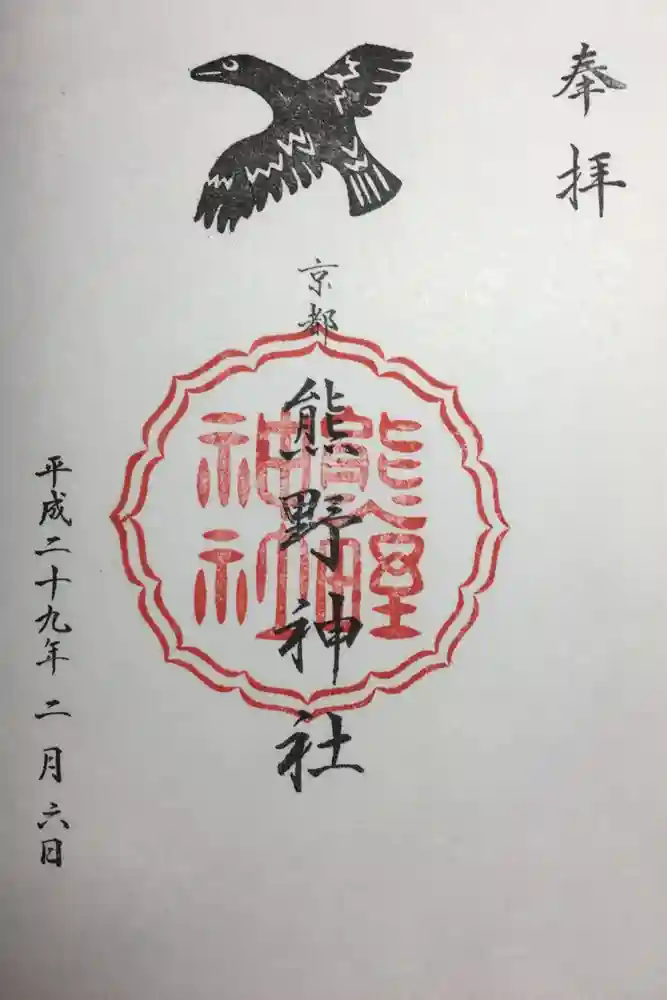 奉拝
京都
熊野神社
熊野
神社
平成二十九年二月六日